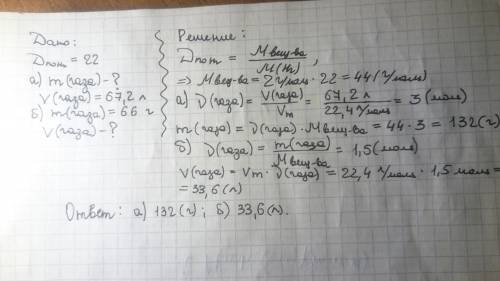 Дано:
Dпот = 22
а) m(газа) - ?
V(газа) = 67,2 л
б) m(газа) = 66 г
V(газа) - ?
Решение:
Dпот = Mвещ-ва / M(H₂) ,
=> Mвещ-ва = 2 г/моль · 22 = 44 (г/моль)
а) ν(газа) = V(газа) / Vm = 67,2 л / 22,4 л/моль = 3 (моль)
m(газа) = ν(газа) · Mвещ-ва = 44 · 3 = 132 (г)
б) ν(газа) = m(газа) / Mвещ-ва = 1,5 (моль)
V(газа) = Vm · ν(газа) = 22,4 л/моль · 1,5 моль =
= 33,6 (л)
Ответ: а) 132 (г) ; б) 33,6 (л).